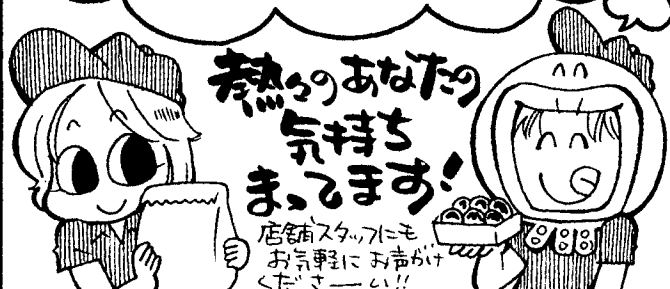 熱々のあなたの
気持ち
まってます!
店舗スタッフにも
お気軽にお声がけ
くださーい!!